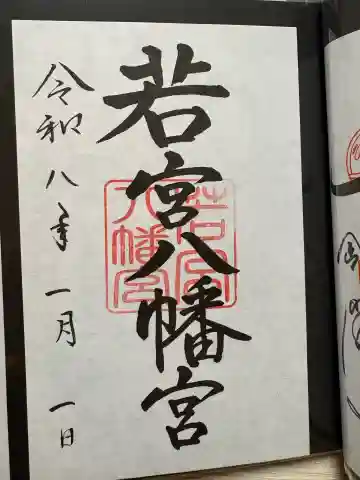 若宮八幡宮
令和八年一月一日
若宮
八幡宮